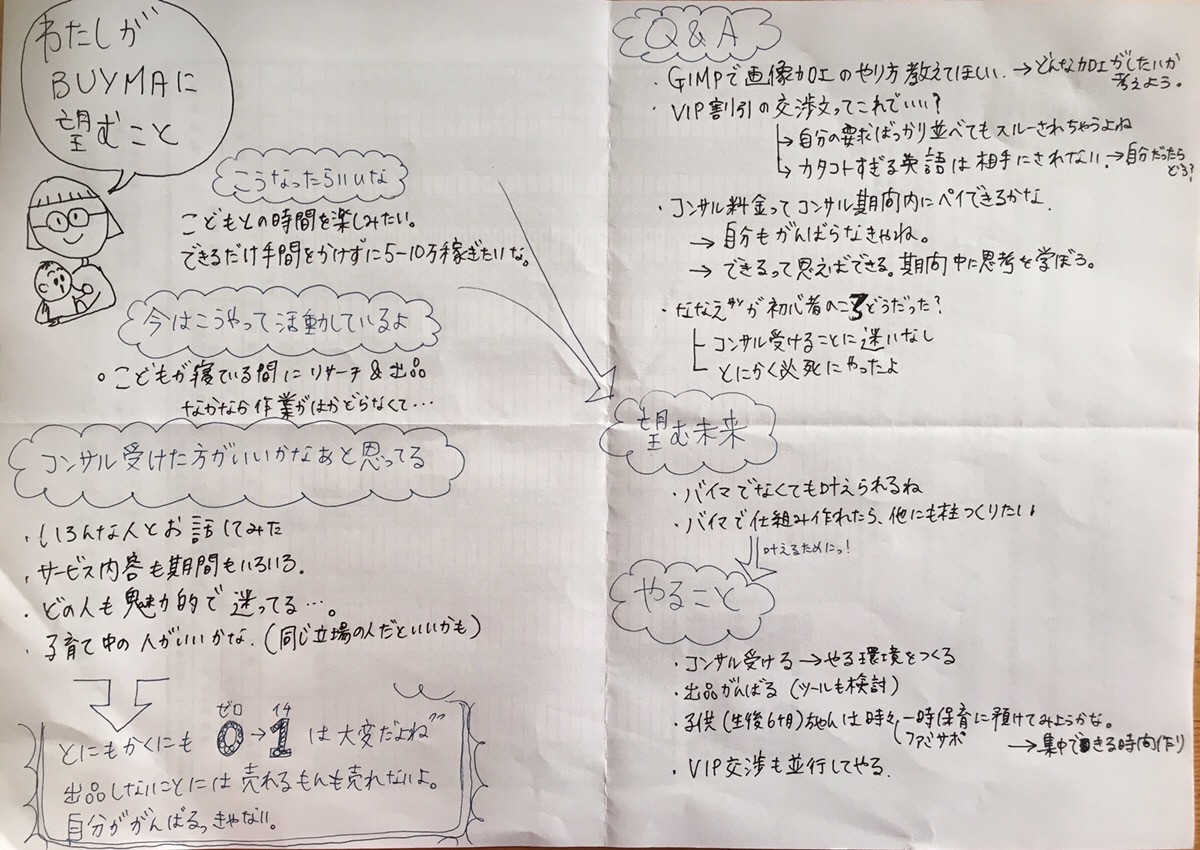 わたしが
BUYMAに
望むこと
こうなったらいいな
こどもとの時間を楽しみたい。
できるだけ手間をかけずに5-10万稼ぎたいな。
今はこうやって活動しているよ
。こどもが寝ている間にリサーチ&出品
なかなか作業がはかどらなくて…
コンサル受けた方がいいかなぁと思ってる
・いろんな人とお話してみた
・サービス内容も期間もいろいろ.
・どの人も魅力的で迷ってる…。
・子育て中の人がいいかな.(同じ立場の人だといいかも)
ゼロ イチ
とにもかくにも 0→1 は大変だよね
出品しないことには売れるもんも売れないよ。
自分ががんばるっきゃない。
Q&A
・GIMPで画像加工のやり方教えてほしい.→どんな加工がしたいか
考えよう。
・VIP割引の交渉文ってこれでいい?
→自分の要求ばっかり並べてもスルーされちゃうよね
→カタコトすぎる英語は相手にされない.→自分だったら
どう?
・コンサル料金ってコンサル期間内にペイできるかな.
→自分もがんばらなきゃね。
→できるって思えばできる。期間中に思考を学ぼう。
・ななえが初心者のころどうだった?
コンサル受けることに迷いなし
とにかく必死にやったよ
望む未来
・バイマでなくても叶えられるね
・バイマで仕組み作れたら、他にも柱つくりたい
叶えるためにっ!
やること
・コンサル受ける→やる環境をつくる
・出品がんばる(ツールも検討)
・子供(生後6ヶ月)ちゃんは時々一時保育に預けてみようかな。
ファミサポ →集中できる時間作り
・VIP交渉も並行してやる.